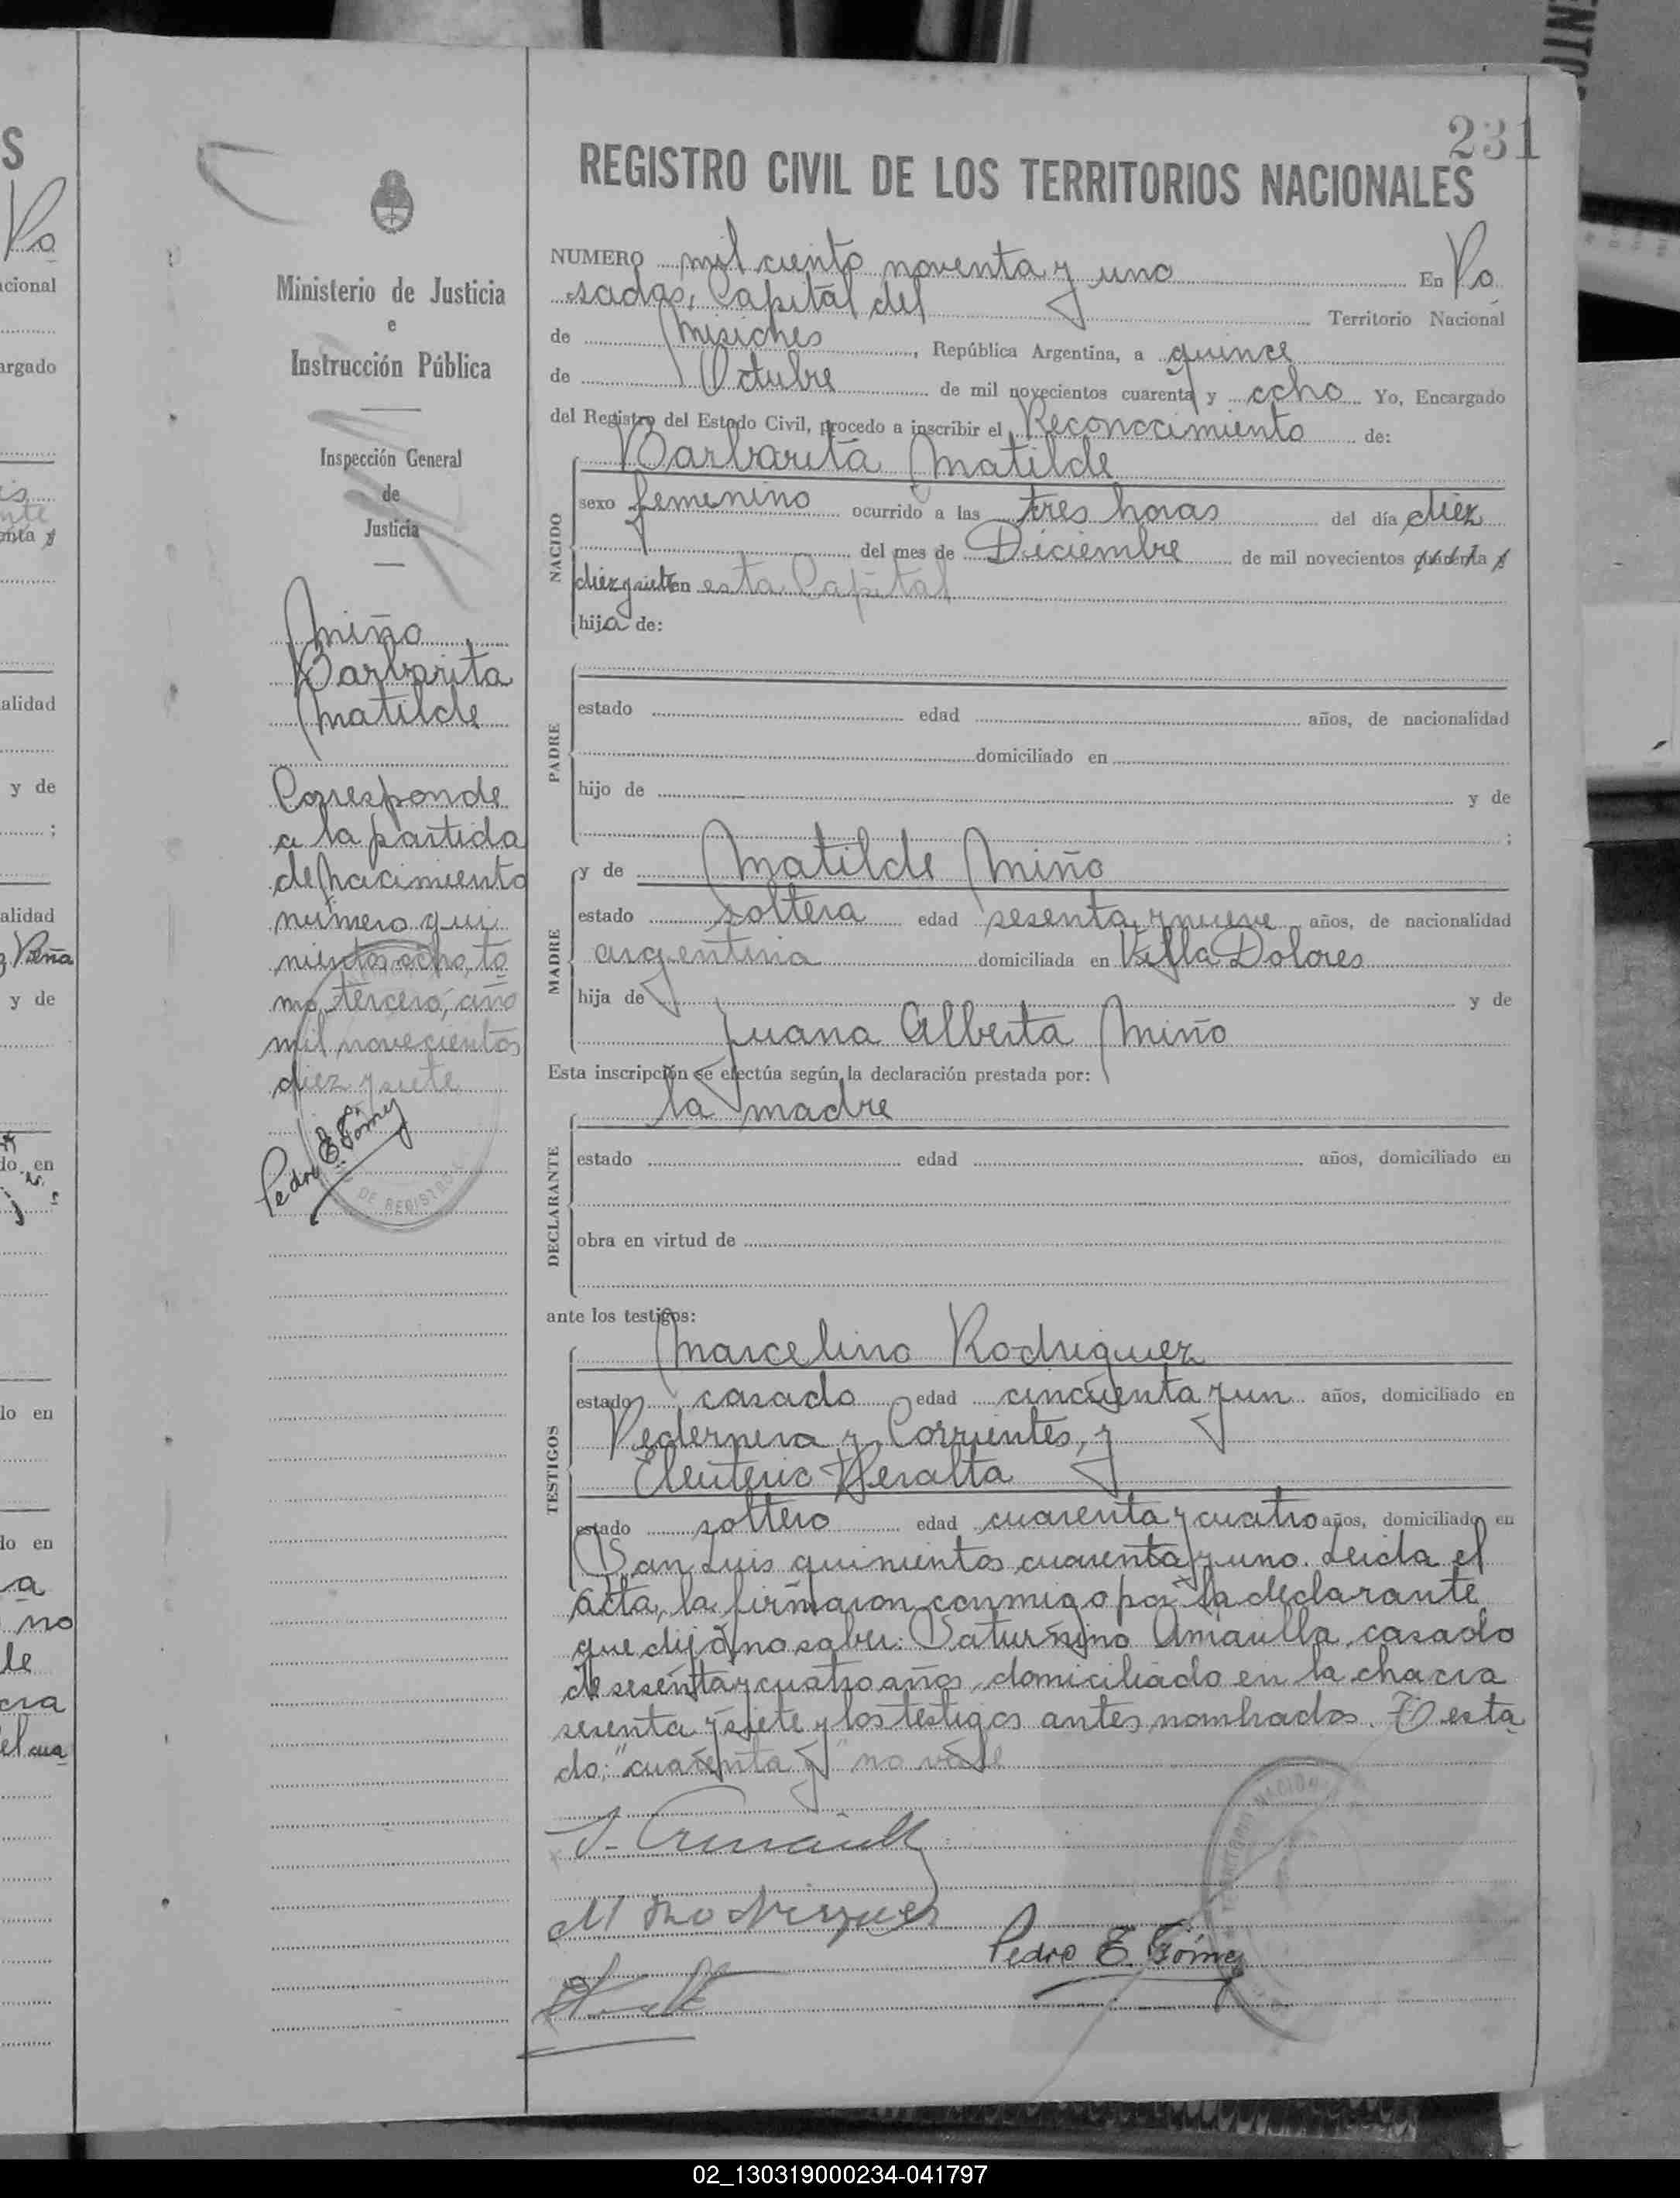 231
REGISTRO CIVIL DE LOS TERRITORIOS NACIONALES
Ministerio de Justicia
e
Instrucción Pública
Inspección General
de
Justicia
Miño
Barbarita
Matilde
Corresponde
a la partida
de nacimiento
número qui
nientos ocho, to
mo tercero, año
mil novecientos
diez y siete
Pedro E. Gómez
DE REGISTRO
NUMERO mil ciento noventa y uno En Po
sadas, Capital del Territorio Nacional
de Misiones, República Argentina, a quince
de Octubre de mil novecientos cuarenta y ocho Yo, Encargado
del Registro del Estado Civil, procedo a inscribir el Reconocimiento de:
Barbarita Matilde
NACIDO
sexo femenino ocurrido a las tres horas del día diez
del mes de Diciembre de mil novecientos cuarenta y
diez y siete en esta Capital
hija de:
PADRE
estado edad años, de nacionalidad
domiciliado en
hijo de y de
;
y de Matilde Miño
MADRE
estado soltera edad sesenta y nueve años, de nacionalidad
argentina domiciliada en Villa Dolores
hija de y de
Juana Alberta Miño
Esta inscripción se efectúa según la declaración prestada por:
la madre
DECLARANTE
estado edad años, domiciliado en
obra en virtud de
ante los testigos:
Marcelino Rodriguez
TESTIGOS
estado casado edad cincuenta y un años, domiciliado en
Pedernera y Corrientes, y
Eleuterio Peralta
estado soltero edad cuarenta y cuatro años, domiciliado en
San Luis quinientos cuarenta y uno. Leida el
acta, la firmaron conmigo por la declarante
que dijo no saber: Saturnino Amarilla, casado
de sesenta y cuatro años, domiciliado en la chacra
sesenta y siete y los testigos antes nombrados. Testa
do: "cuarenta y" no vale
M Rodriguez
Pedro E. Gómez
02_130319000234-041797